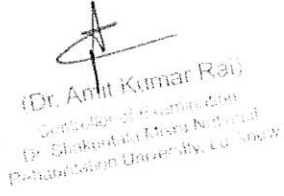 (Dr. Amit Kumar Rai)
Controller of Examination
Dr. Shakuntala Misra National
Rehabilitation University, Lucknow